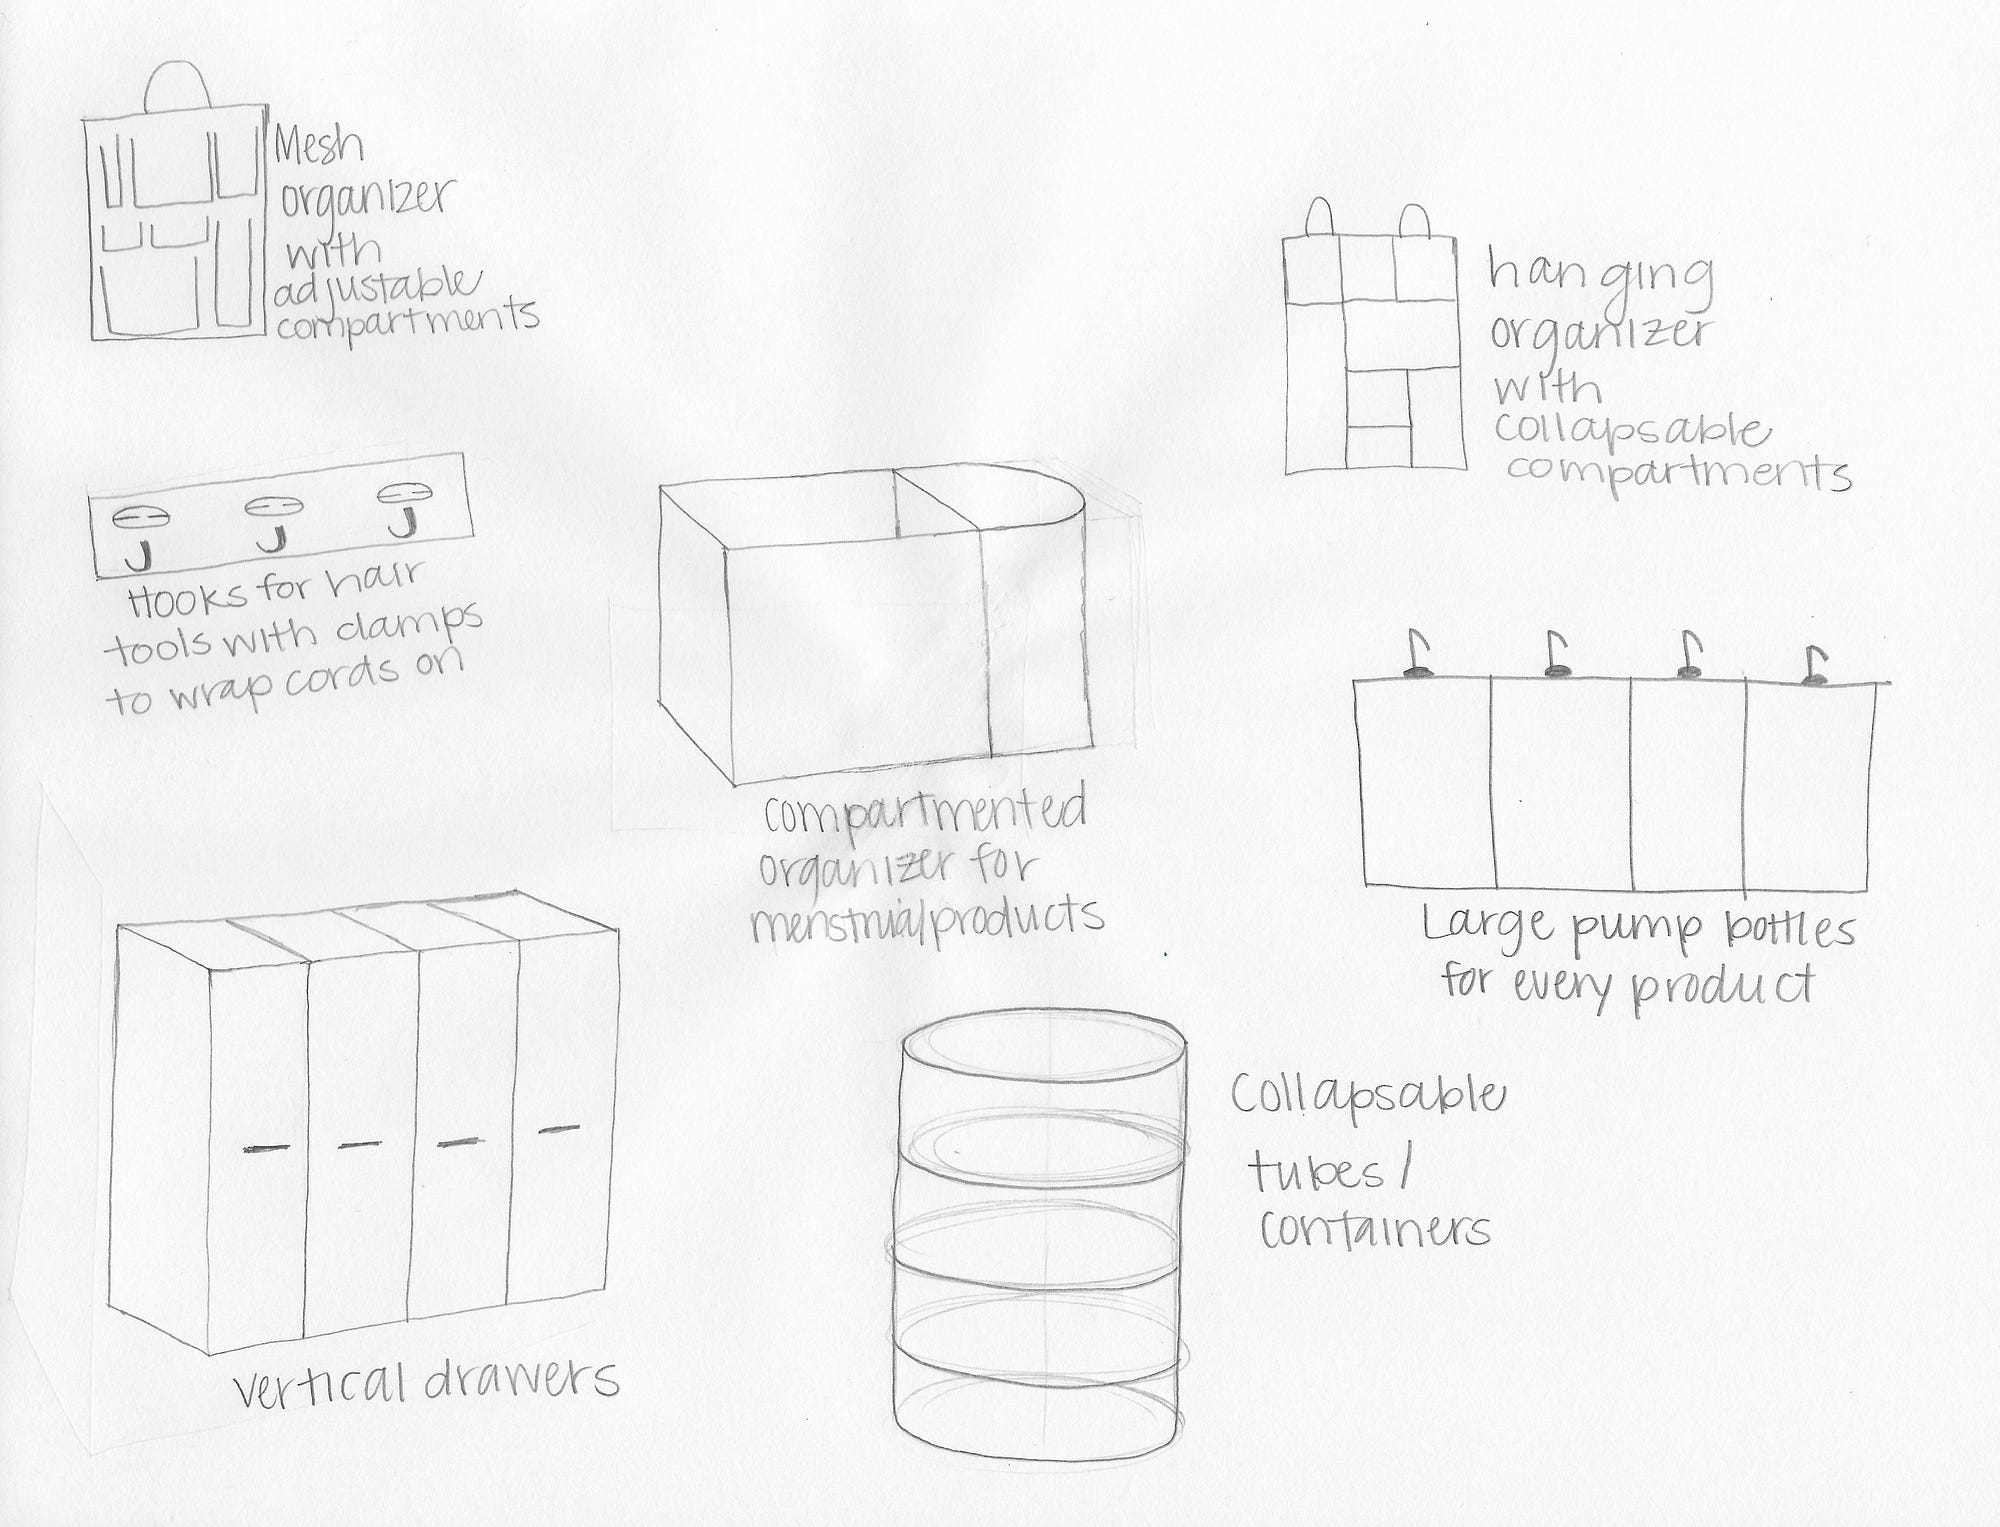 Mesh
organizer
with
adjustable
compartments
hanging
organizer
with
collapsable
compartments
Hooks for hair
tools with clamps
to wrap cords on
compartmented
organizer for
menstrual products
Large pump bottles
for every product
vertical drawers
Collapsable
tubes/
containers